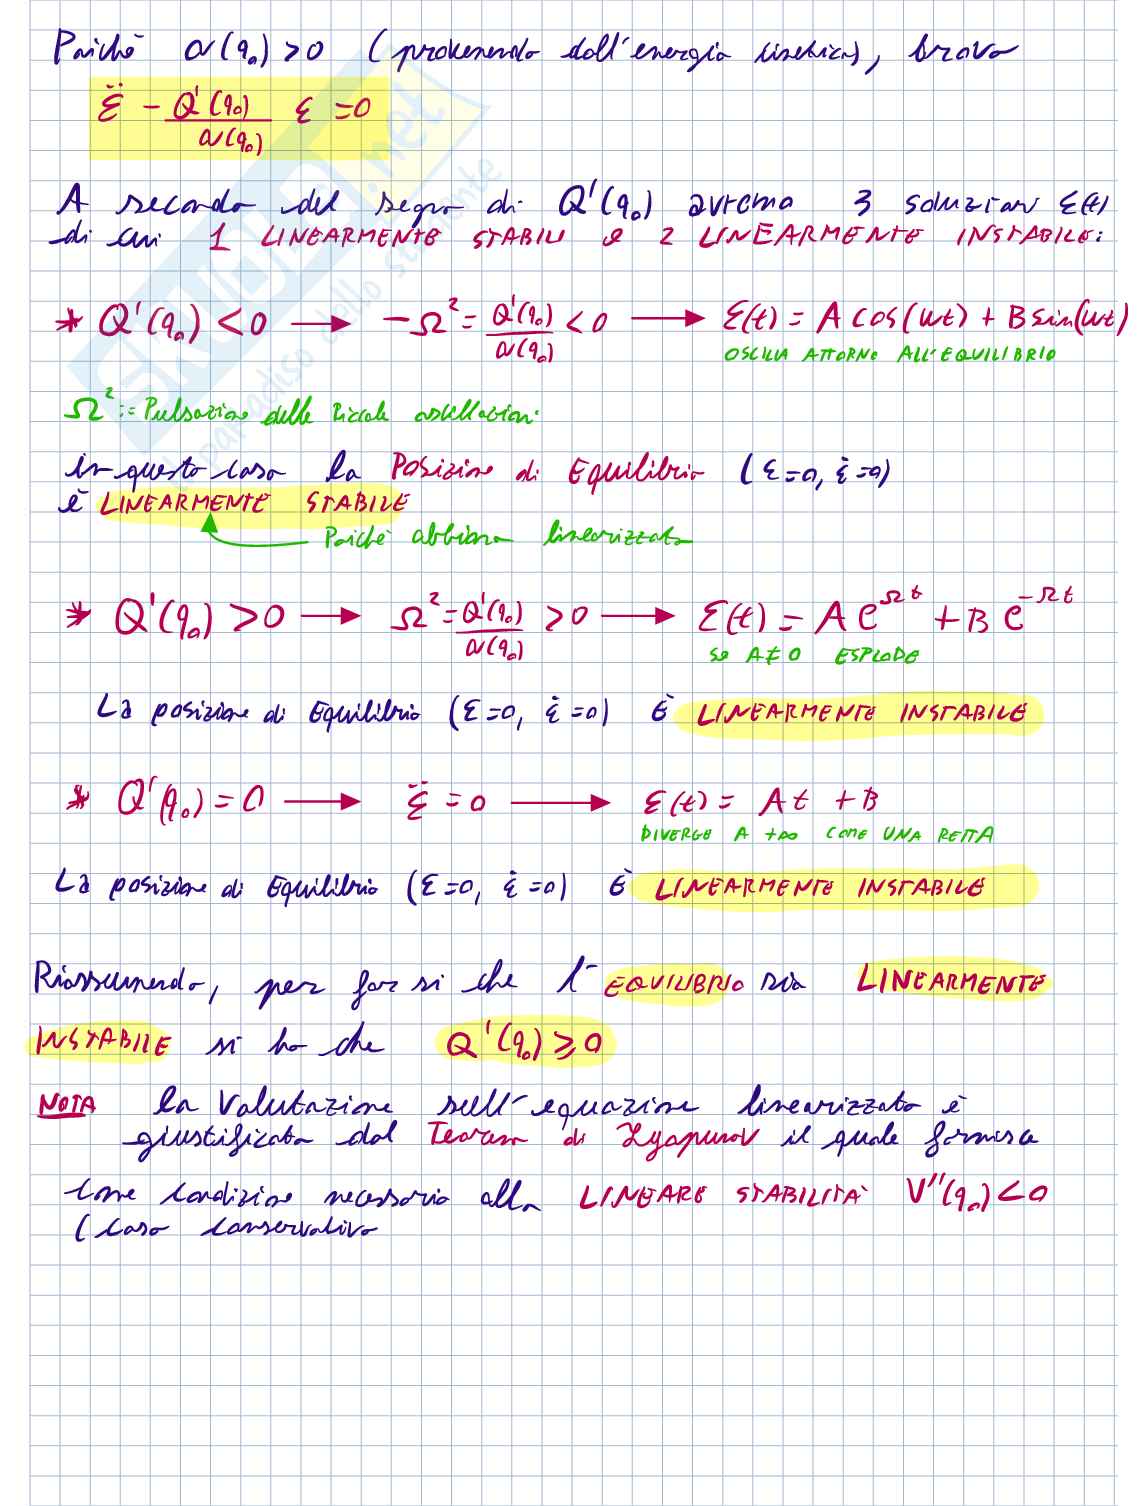 Poiché a(q₀) > 0 (provenendo dall'energia cinetica), trovo
ε̈ - Q'(q₀)/a(q₀) ε = 0
A seconda del segno di Q'(q₀) avremo 3 soluzioni ε(t)
di cui 1 LINEARMENTE STABILE e 2 LINEARMENTE INSTABILE:
* Q'(q₀) < 0 → -Ω² = Q'(q₀)/a(q₀) < 0 → ε(t) = A cos(ωt) + B sin(ωt)
OSCILLA ATTORNO ALL'EQUILIBRIO
Ω² := Pulsazione delle Piccole oscillazioni
in questo caso la Posizione di Equilibrio (ε=0, ε̇=0)
è LINEARMENTE STABILE
Poiché abbiamo linearizzato
* Q'(q₀) > 0 → Ω² = Q'(q₀)/a(q₀) > 0 → ε(t) = A e^Ωt + B e^-Ωt
se A≠0 ESPLODE
La posizione di Equilibrio (ε=0, ε̇=0) È LINEARMENTE INSTABILE
* Q'(q₀) = 0 → ε̈ = 0 → ε(t) = At + B
DIVERGE A +∞ COME UNA RETTA
La posizione di Equilibrio (ε=0, ε̇=0) È LINEARMENTE INSTABILE
Riassumendo, per far si che l'EQUILIBRIO sia LINEARMENTE
INSTABILE si ha che Q'(q₀) ⩾ 0
NOTA la Valutazione sull'equazione linearizzata è
giustificata dal Teorema di Lyapunov il quale fornisce
come condizione necessaria alla LINEARE STABILITÀ V''(q₀) < 0
(caso conservativo
SKUOLA.net
il paradiso dello studente